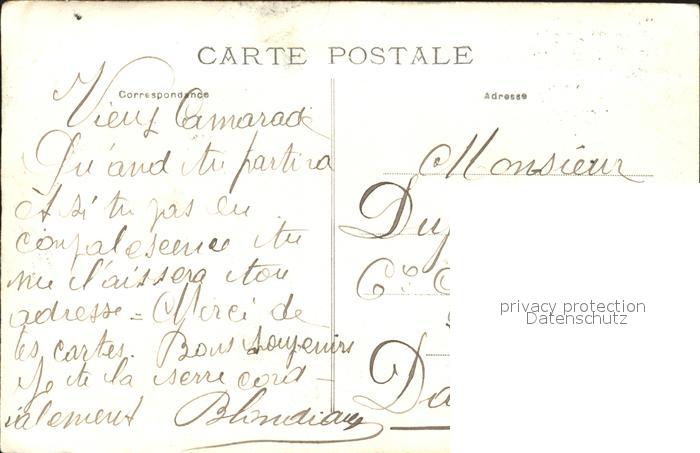 CARTE POSTALE
Correspondance
Adresse
Vieux Camarade
Qu'and tu partira
et si tu pas en
convalesence tu
me l'aissera ton
adresse = Merci de
tes cartes. Bons souvenirs
Je te la serre cord-
ialement Blondiaux
Monsieur
privacy protection
Datenschutz